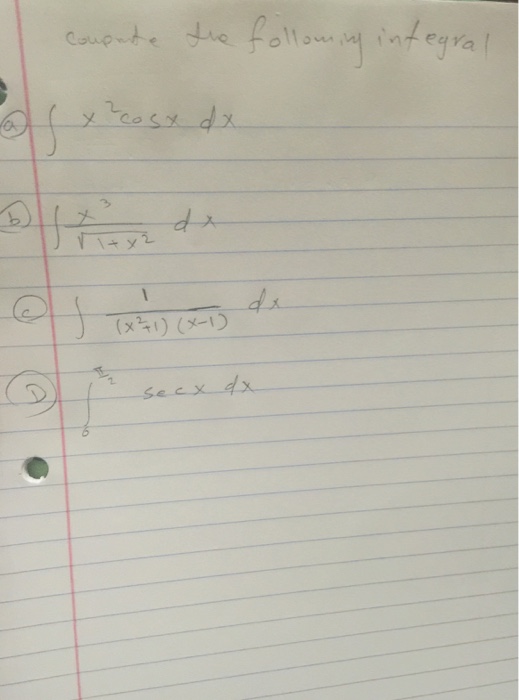 compute the following integral
a ∫ x² cosx dx
b ∫ x³/√(1+x²) dx
c ∫ 1/((x²+1)(x-1)) dx
D ∫₀^(π/2) secx dx